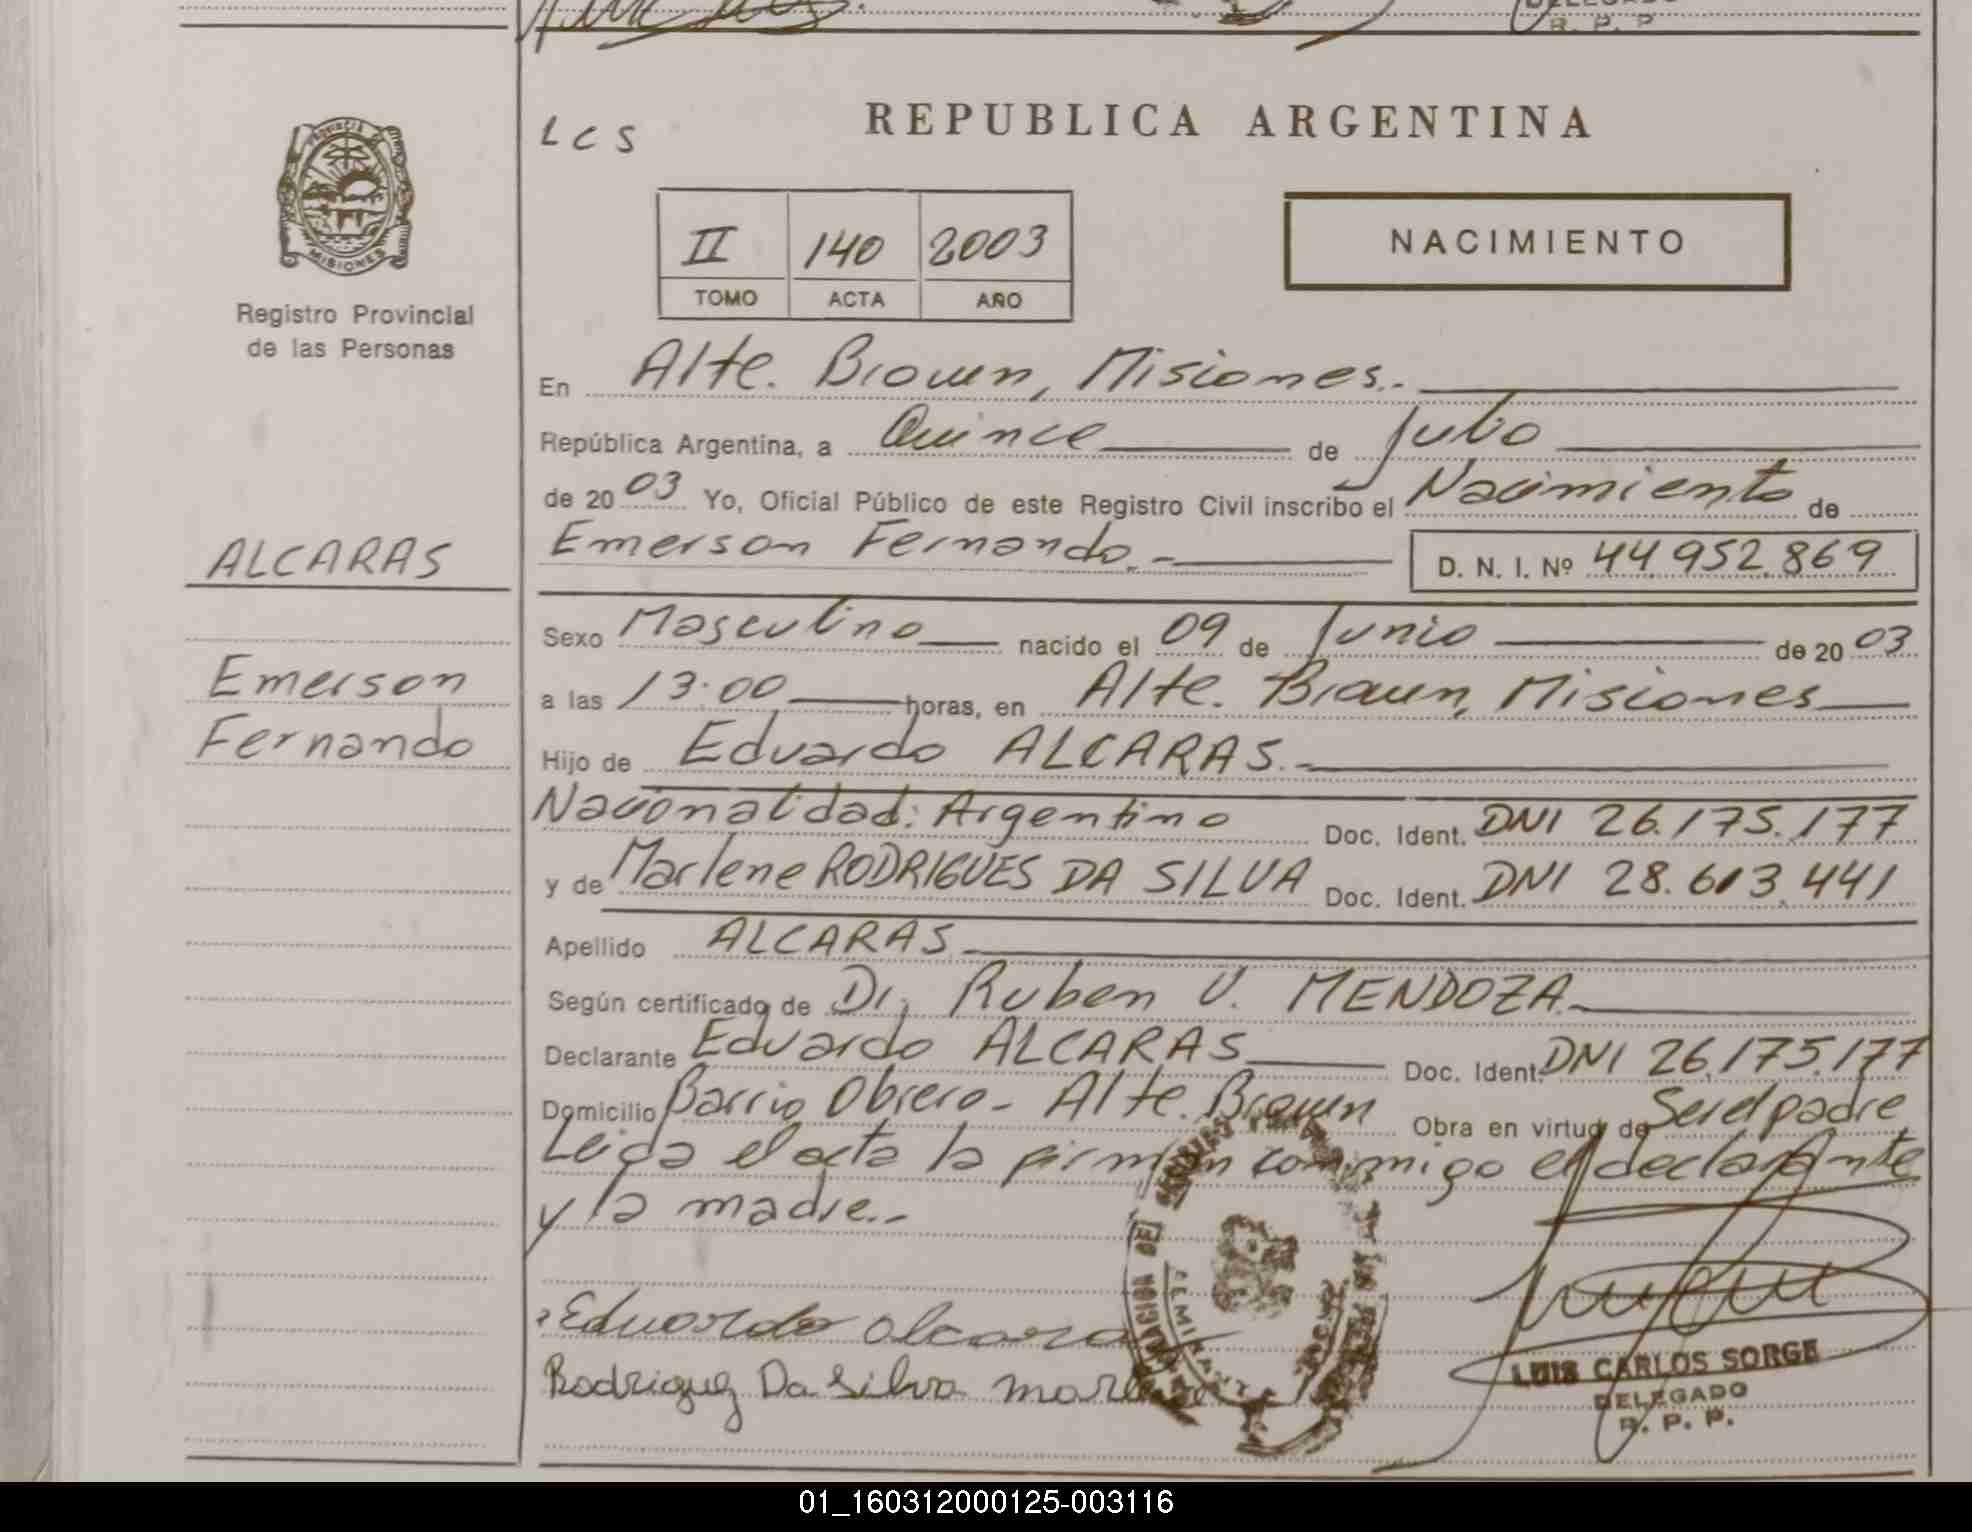 DELEGADO
R. P. P
PROVINCIA DE
MISIONES
Registro Provincial
de las Personas
ALCARAS
Emerson
Fernando
LCS
REPUBLICA ARGENTINA
II 140 2003
TOMO ACTA AÑO
NACIMIENTO
En Alte. Brown, Misiones.-
República Argentina, a Quince de Julio
de 2003 Yo, Oficial Público de este Registro Civil inscribo el Nacimiento de
Emerson Fernando.- D. N. I. Nº 44.952.869
Sexo Masculino nacido el 09 de Junio de 2003
a las 13.00 horas, en Alte. Brown, Misiones
Hijo de Eduardo ALCARAS.-
Nacionalidad: Argentino Doc. Ident. DNI 26.175.177
y de Marlene RODRIGUES DA SILVA Doc. Ident. DNI 28.613.441
Apellido ALCARAS
Según certificado de Dr. Ruben V. MENDOZA.
Declarante Eduardo ALCARAS Doc. Ident. DNI 26.175.177
Domicilio Barrio Obrero - Alte. Brown Obra en virtud de Ser el padre
Leida el acta la firman conmigo el declarante
y la madre.-
Eduardo alcara
Rodriguez Da Silva
LUIS CARLOS SORGE
DELEGADO
R. P. P.
01_160312000125-003116